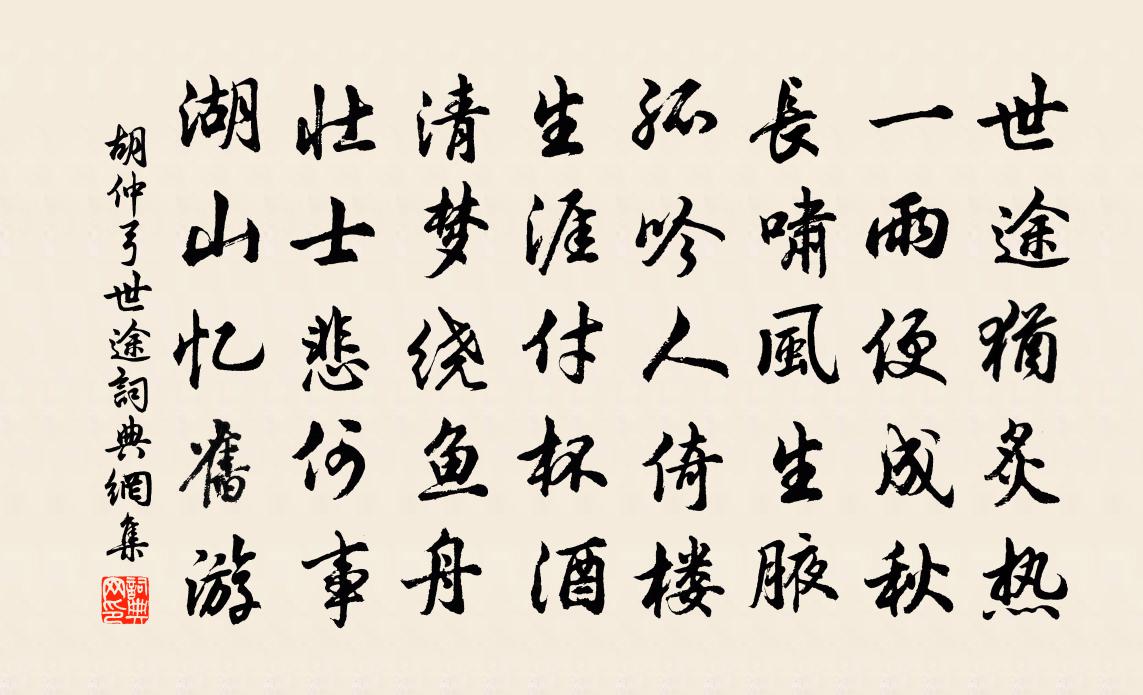 世途猶炙热
一雨便成秋
長嘯風生腋
孤吟人倚楼
生涯付杯酒
清梦绕鱼舟
壮士悲何事
湖山忆舊游
胡仲弓世途詞典網集
詞典网印